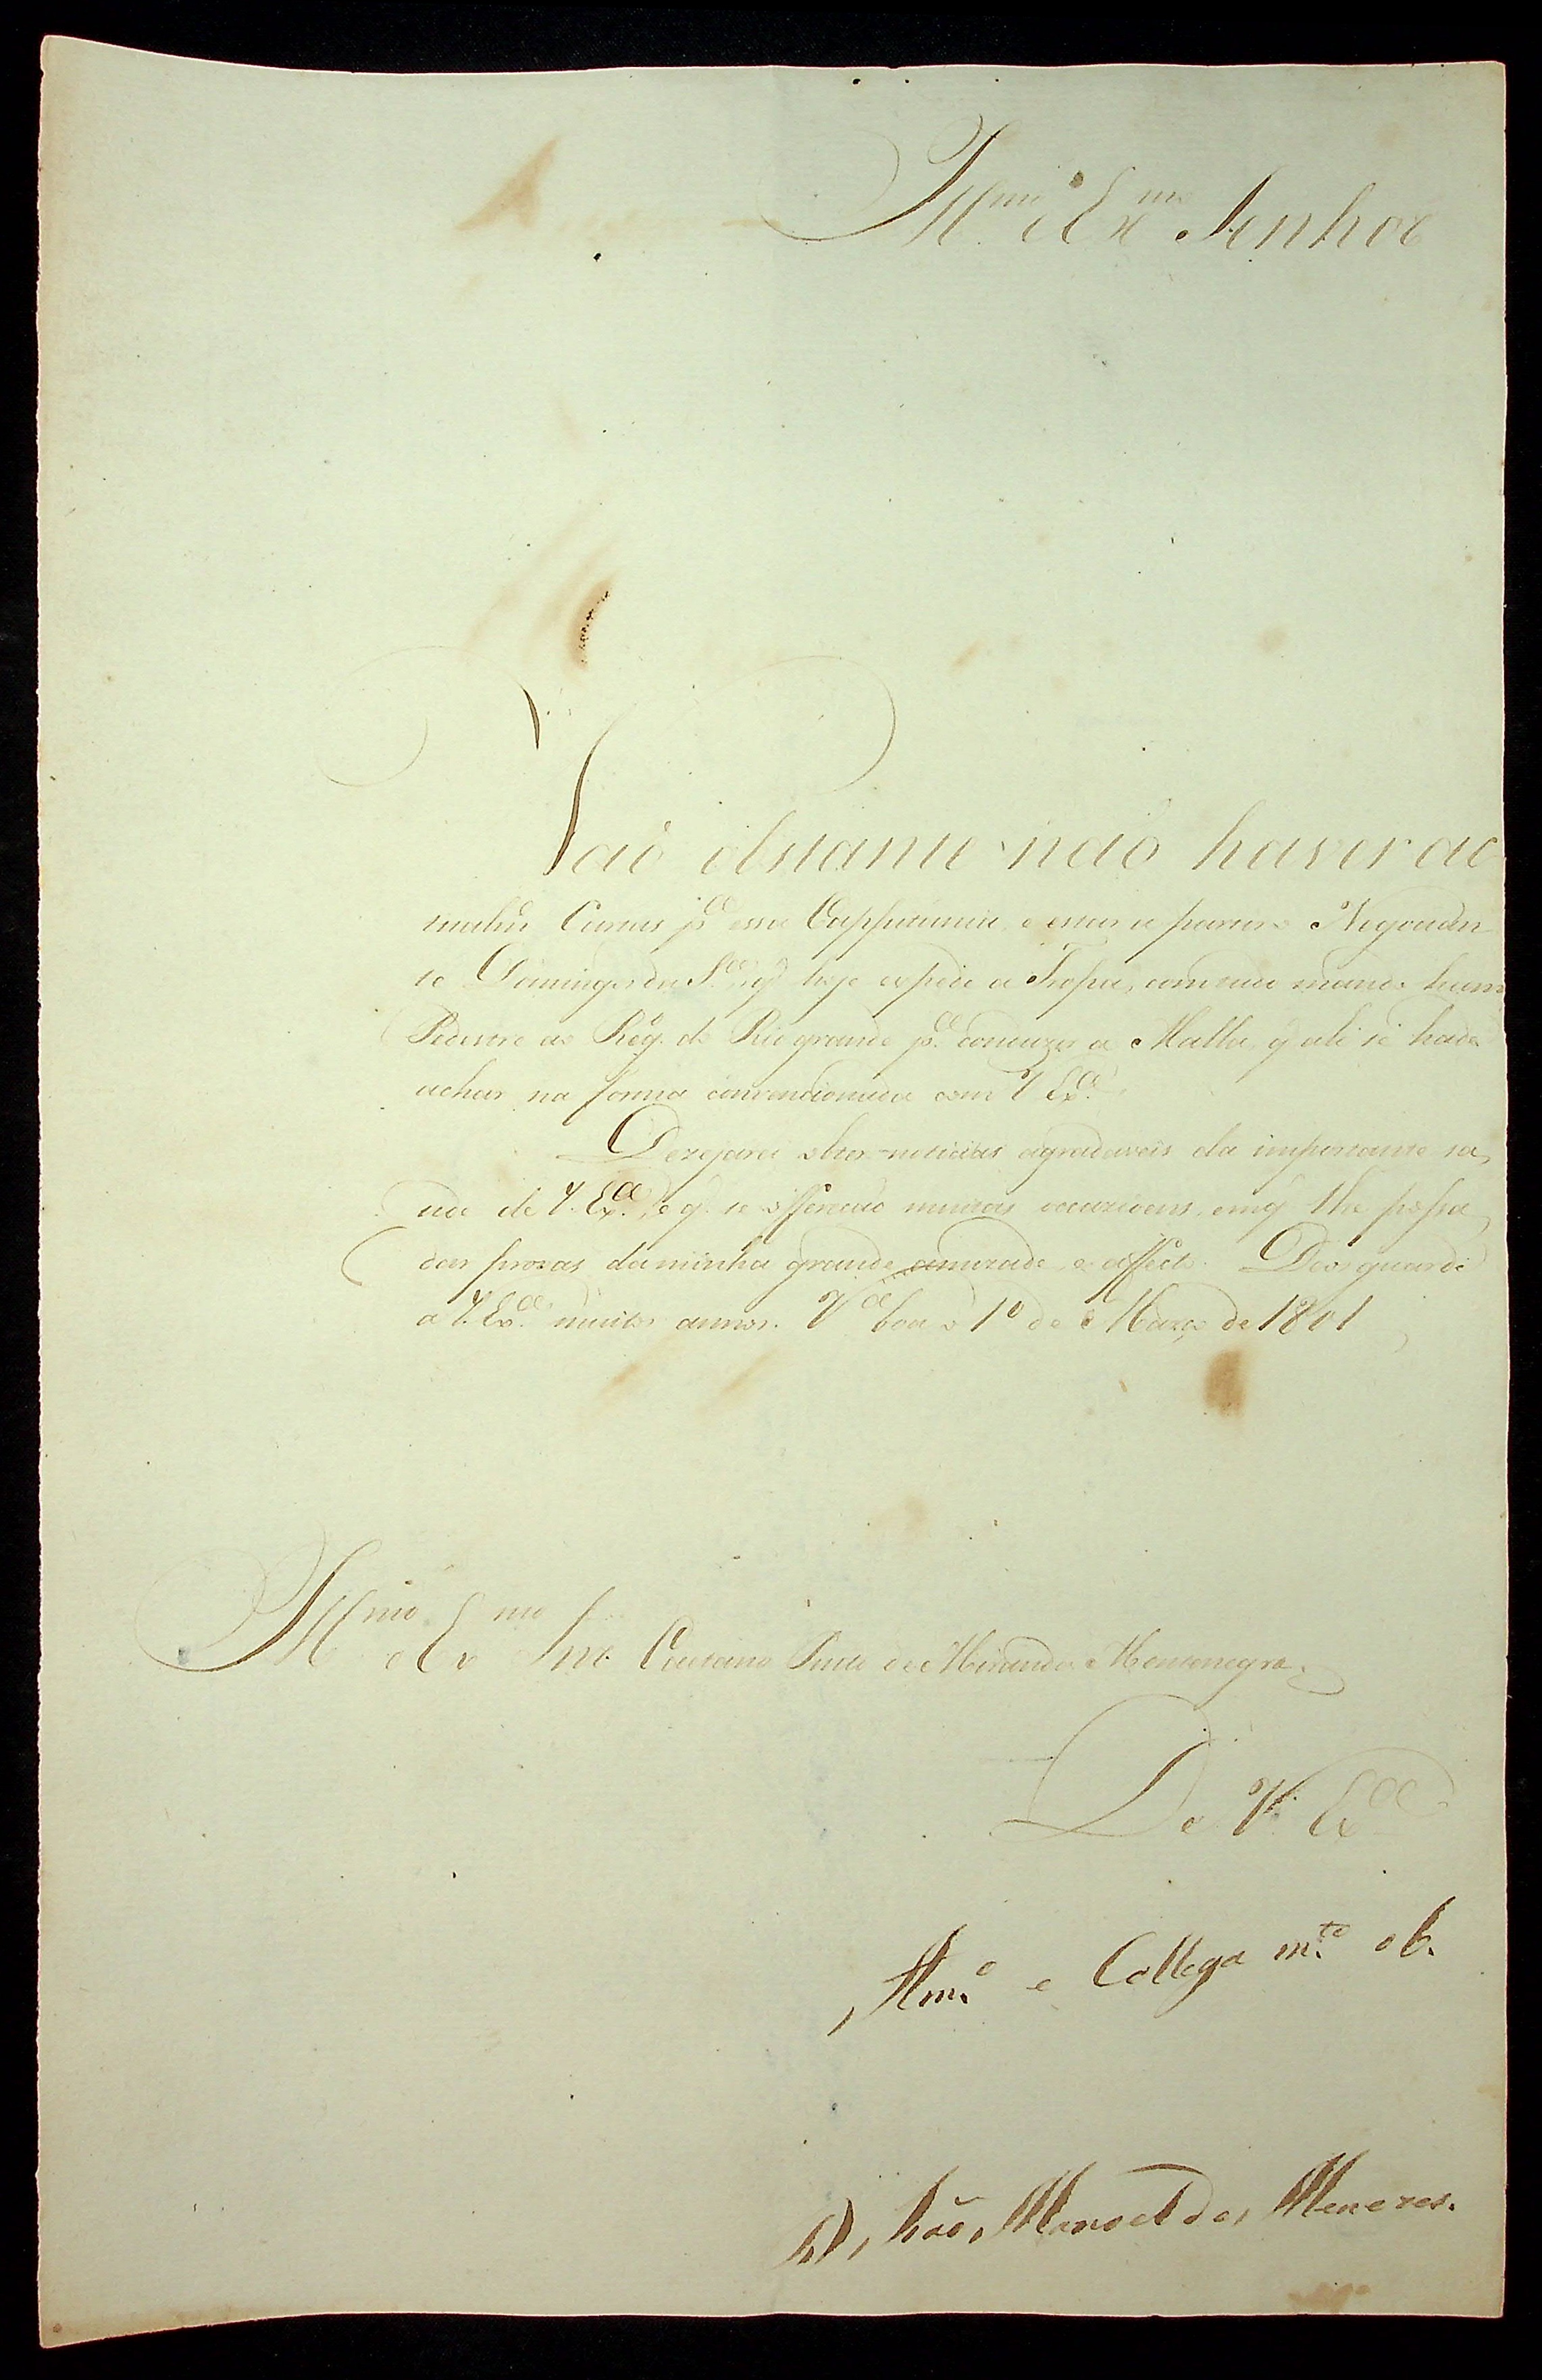 Ill.mo e Ex.mo Senhor
Naõ obstante naõ haver ac
tualm.te Cartas p.a essa Cappitania, e estar a partir o Negocian
te Domingos da S.a, q' hoje expede a Tropa, com tudo mando hum
Pedestre ao Reg.o do Rio grande p.a conduzir a Malla, q' ali se hade
achar na forma convencionada com V. Ex.a
Dezejarei obter noticias agradaveis da importante sa
ude de V. Ex.a, e q' se offereçaõ muitas occazioens, em q' lhe possa
dar provas da minha grande amizade, e affecto. Deos guarde
a V. Ex.a muitos annos. V.a boa o 1º de Março de 1801
Ill.mo e Ex.mo Snr. Caetano Pinto de Miranda Montenegro.
De V. Ex.a
Am.o e Collega m.to ob.
D. Joaõ Manoel de Menezes.